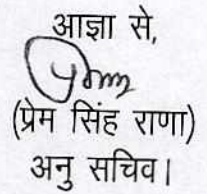 आज्ञा से,
(प्रेम सिंह राणा)
अनु सचिव।